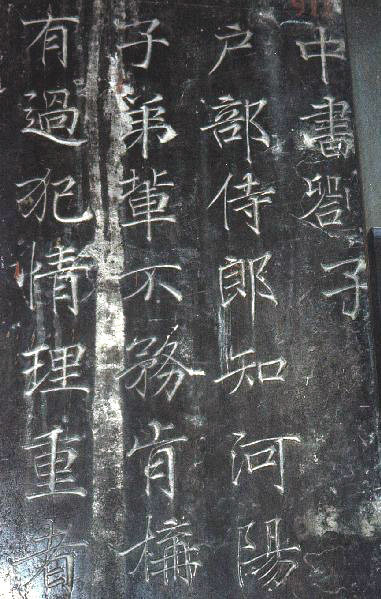 中書劄子
户部侍郎知河陽
子弟軰不務肯構
有過犯情理重者